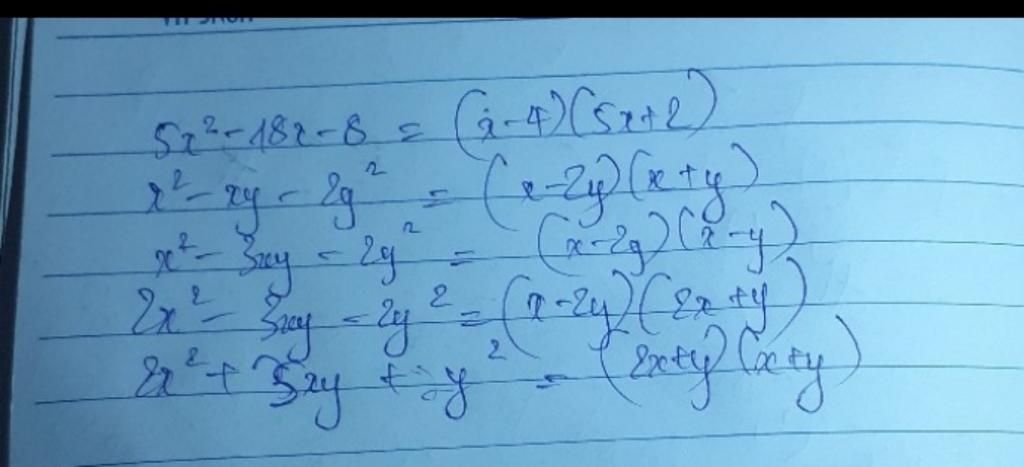 5x² - 18x - 8 = (x-4)(5x+2)
x² - xy - 2y² = (x-2y)(x+y)
x² - 3xy - 2y² = (x-2y)(x-y)
2x² - 3xy - 2y² = (x-2y)(2x+y)
2x² + 3xy + y² = (2x+y)(x+y)